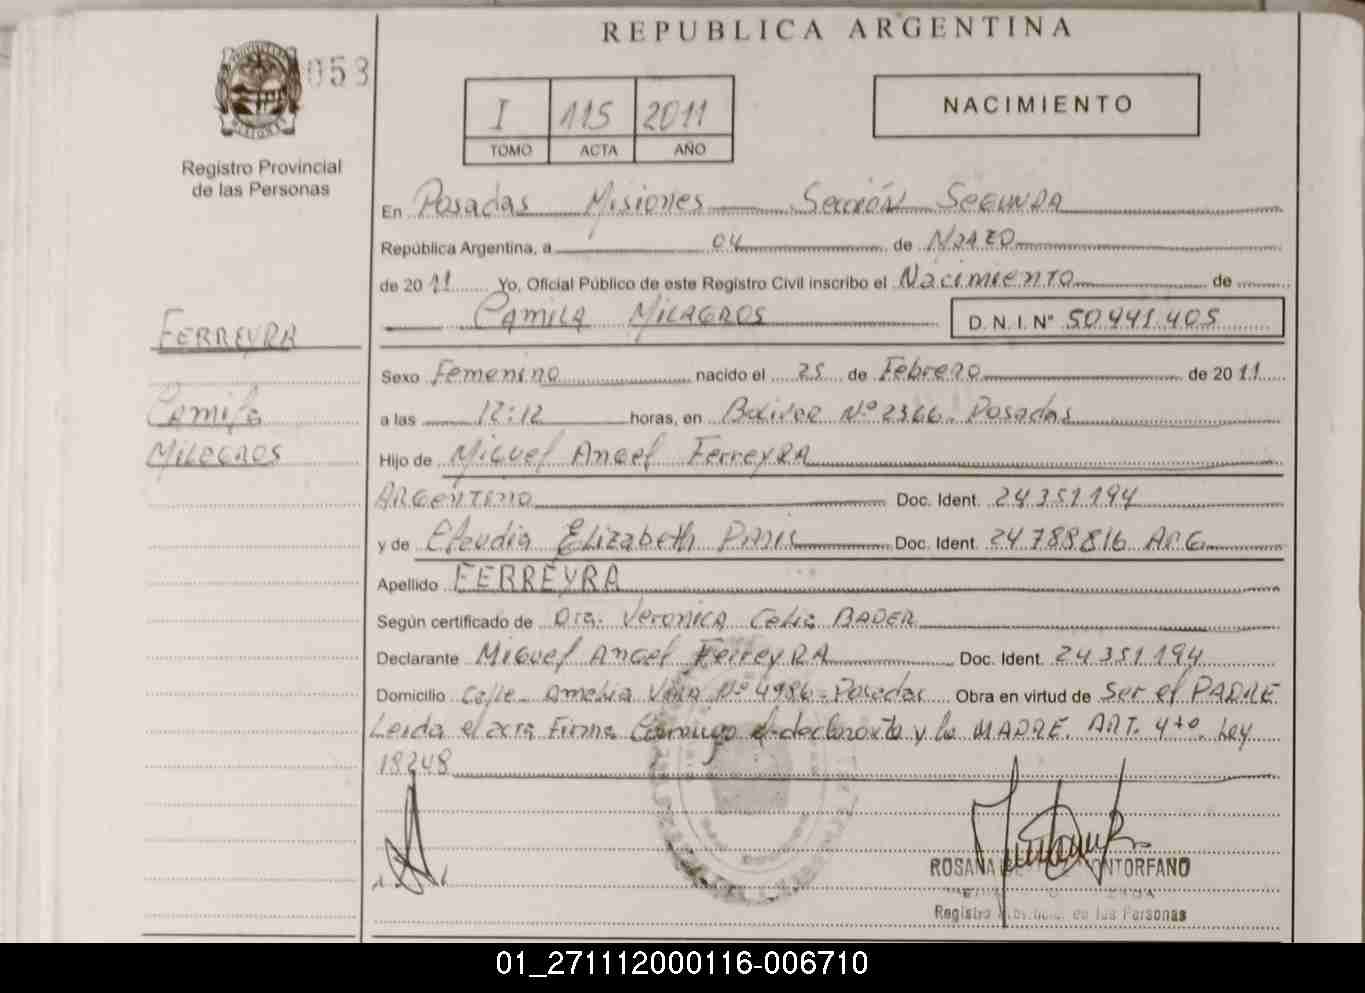 REPUBLICA ARGENTINA
053
I 115 2011
TOMO ACTA AÑO
NACIMIENTO
Registro Provincial
de las Personas
En Posadas Misiones Sección Segunda
República Argentina, a 04 de Marzo
de 2011 Yo, Oficial Público de este Registro Civil inscribo el Nacimiento de
Camila Milagros D. N. I. Nº 50.441.405
FERREYRA
Camila
Milagros
Sexo Femenino nacido el 25 de Febrero de 2011
a las 12:12 horas, en Bolivar Nº 2366. Posadas
Hijo de Miguel Angel Ferreyra
Argentino Doc. Ident. 24.351.194
y de Claudia Elizabeth Doc. Ident. 24.788.816 ARG
Apellido FERREYRA
Según certificado de Dra. Veronica Celia BADER
Declarante Miguel Angel Ferreyra Doc. Ident. 24.351.194
Domicilio Calle Nº 4986 - Posadas Obra en virtud de Ser el PADRE
Leida el acta Firma Conmigo el declarante y la MADRE. ART. 4to. Ley
18248
ROSANA MONTORFANO
Registro Provincial de las Personas
01_271112000116-006710